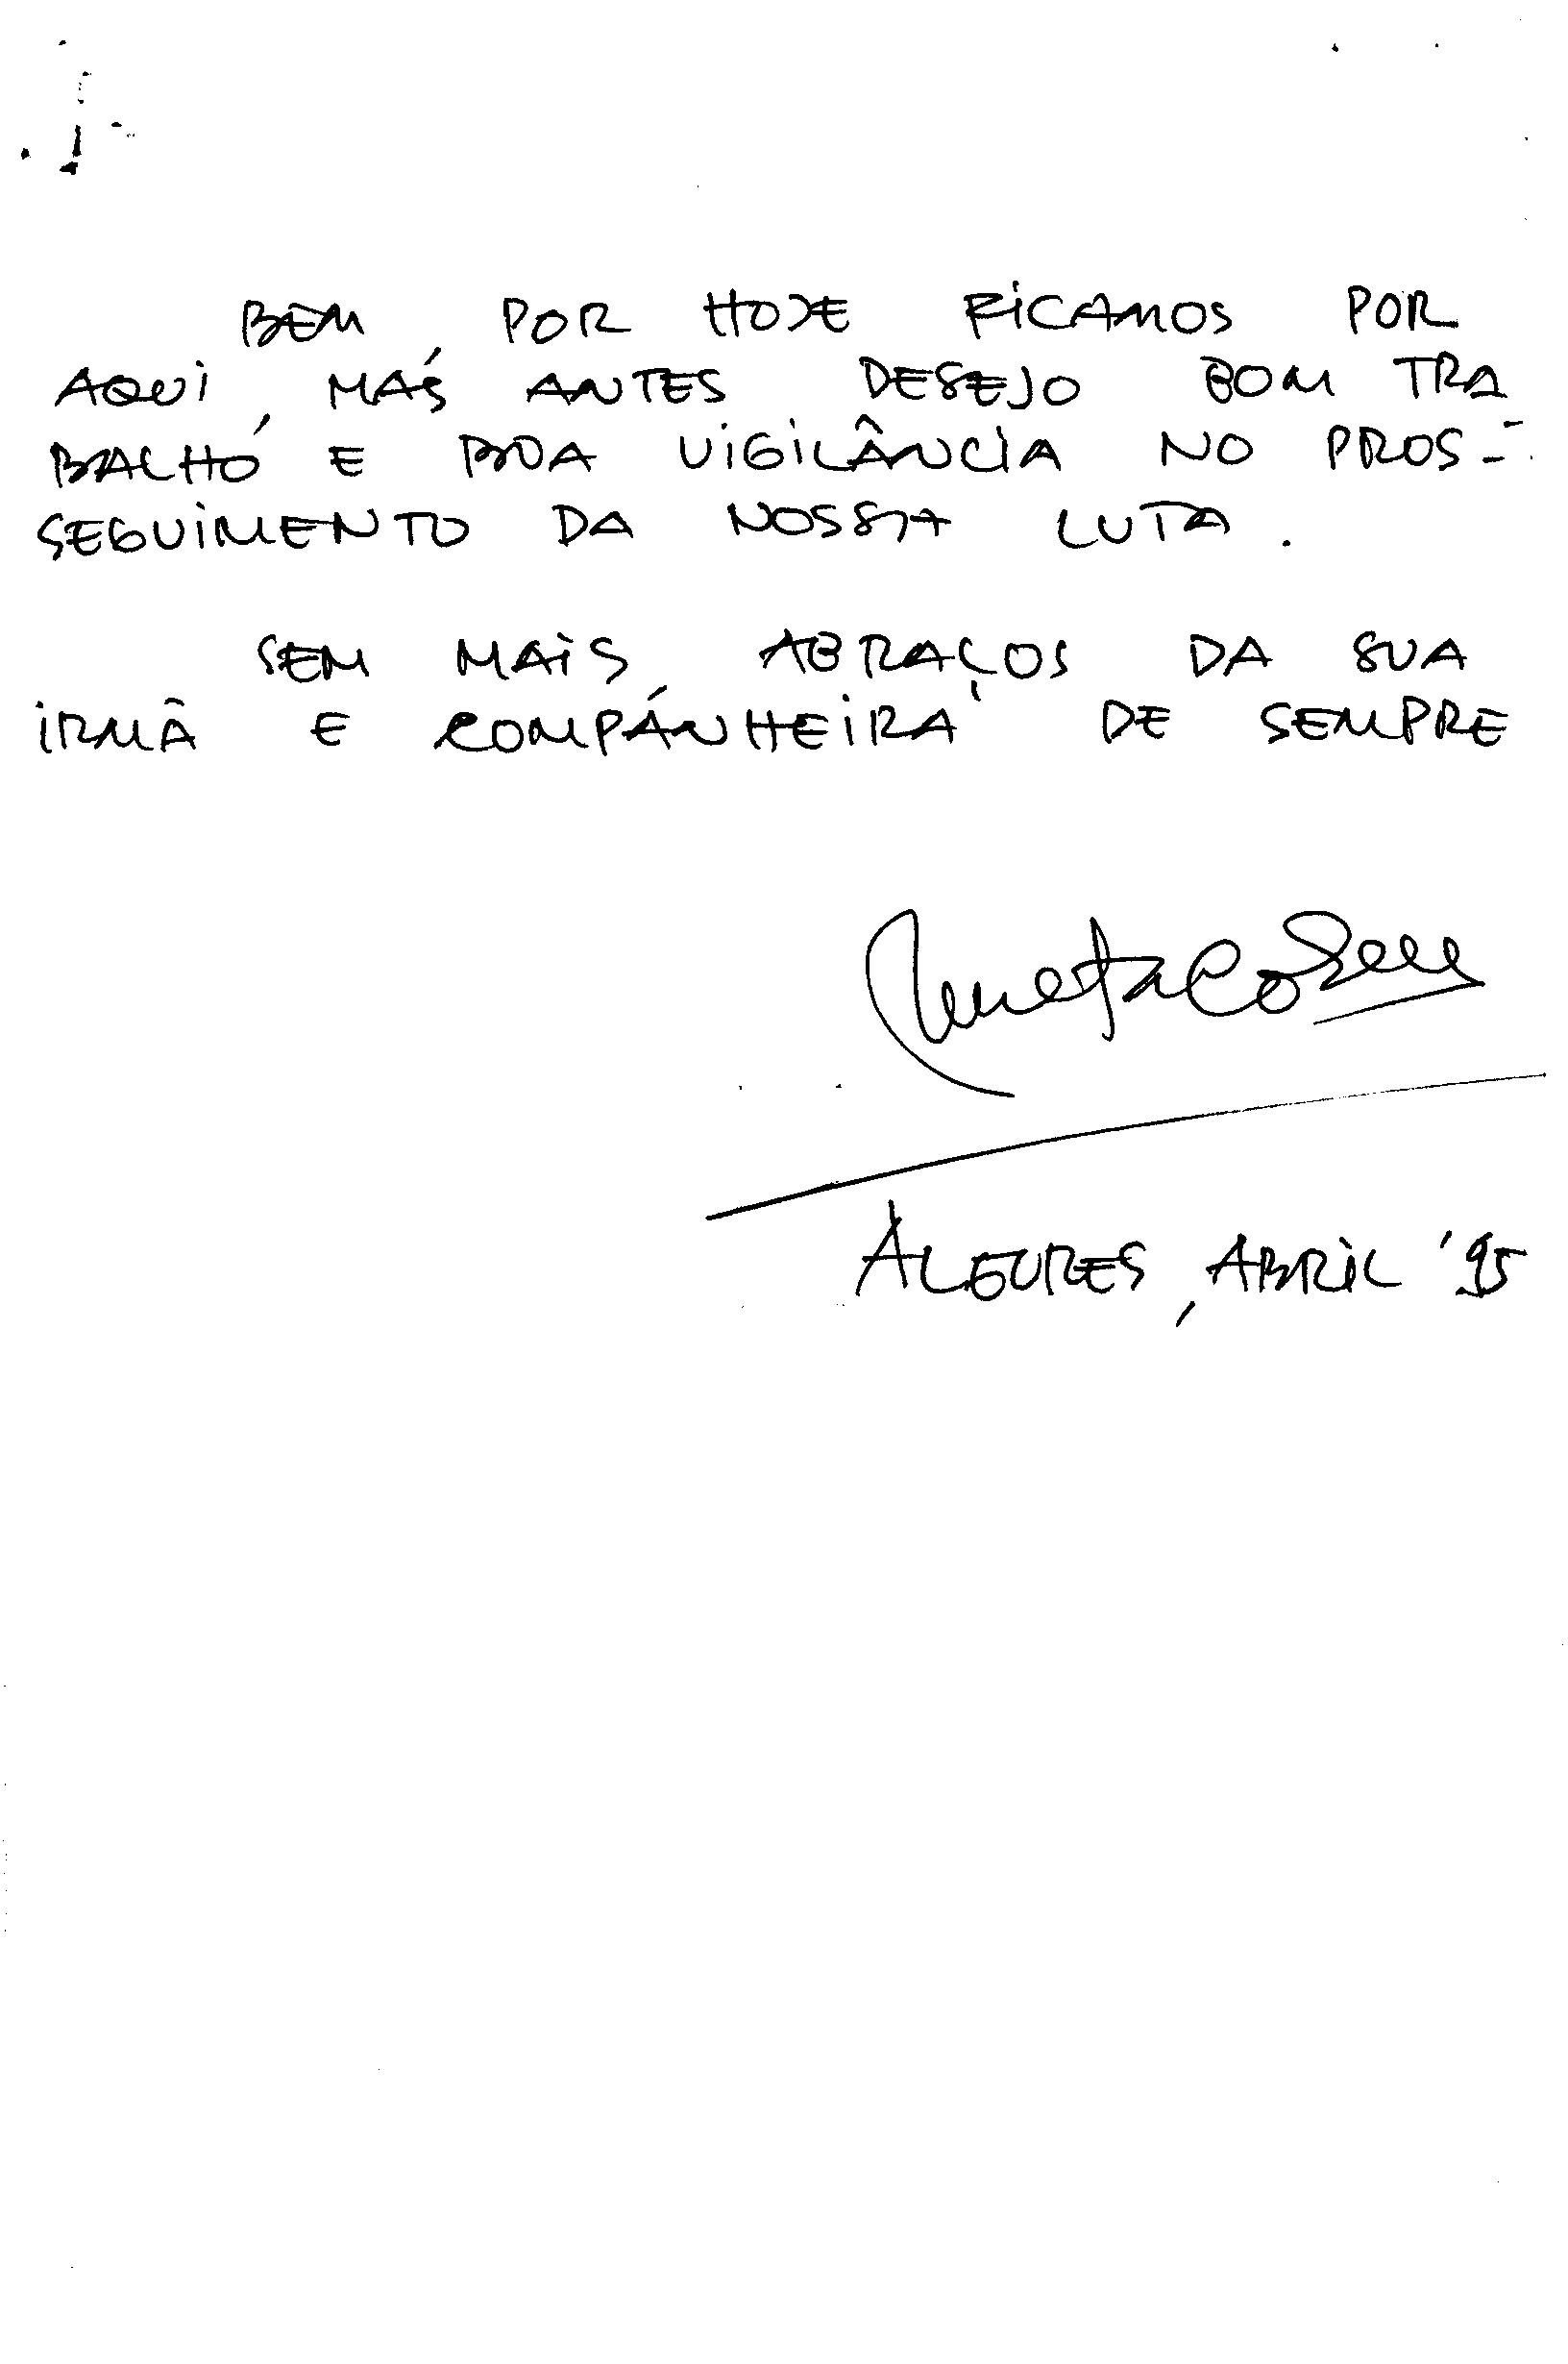 BEM, POR HOJE FICAMOS POR
AQUI, MAS ANTES DESEJO BOM TRA
BALHO E BOA VIGILÂNCIA NO PROS-
SEGUIMENTO DA NOSSA LUTA.
SEM MAIS, ABRAÇOS DA SUA
IRMÃ E COMPANHEIRA DE SEMPRE
ALGURES, ABRIL '95